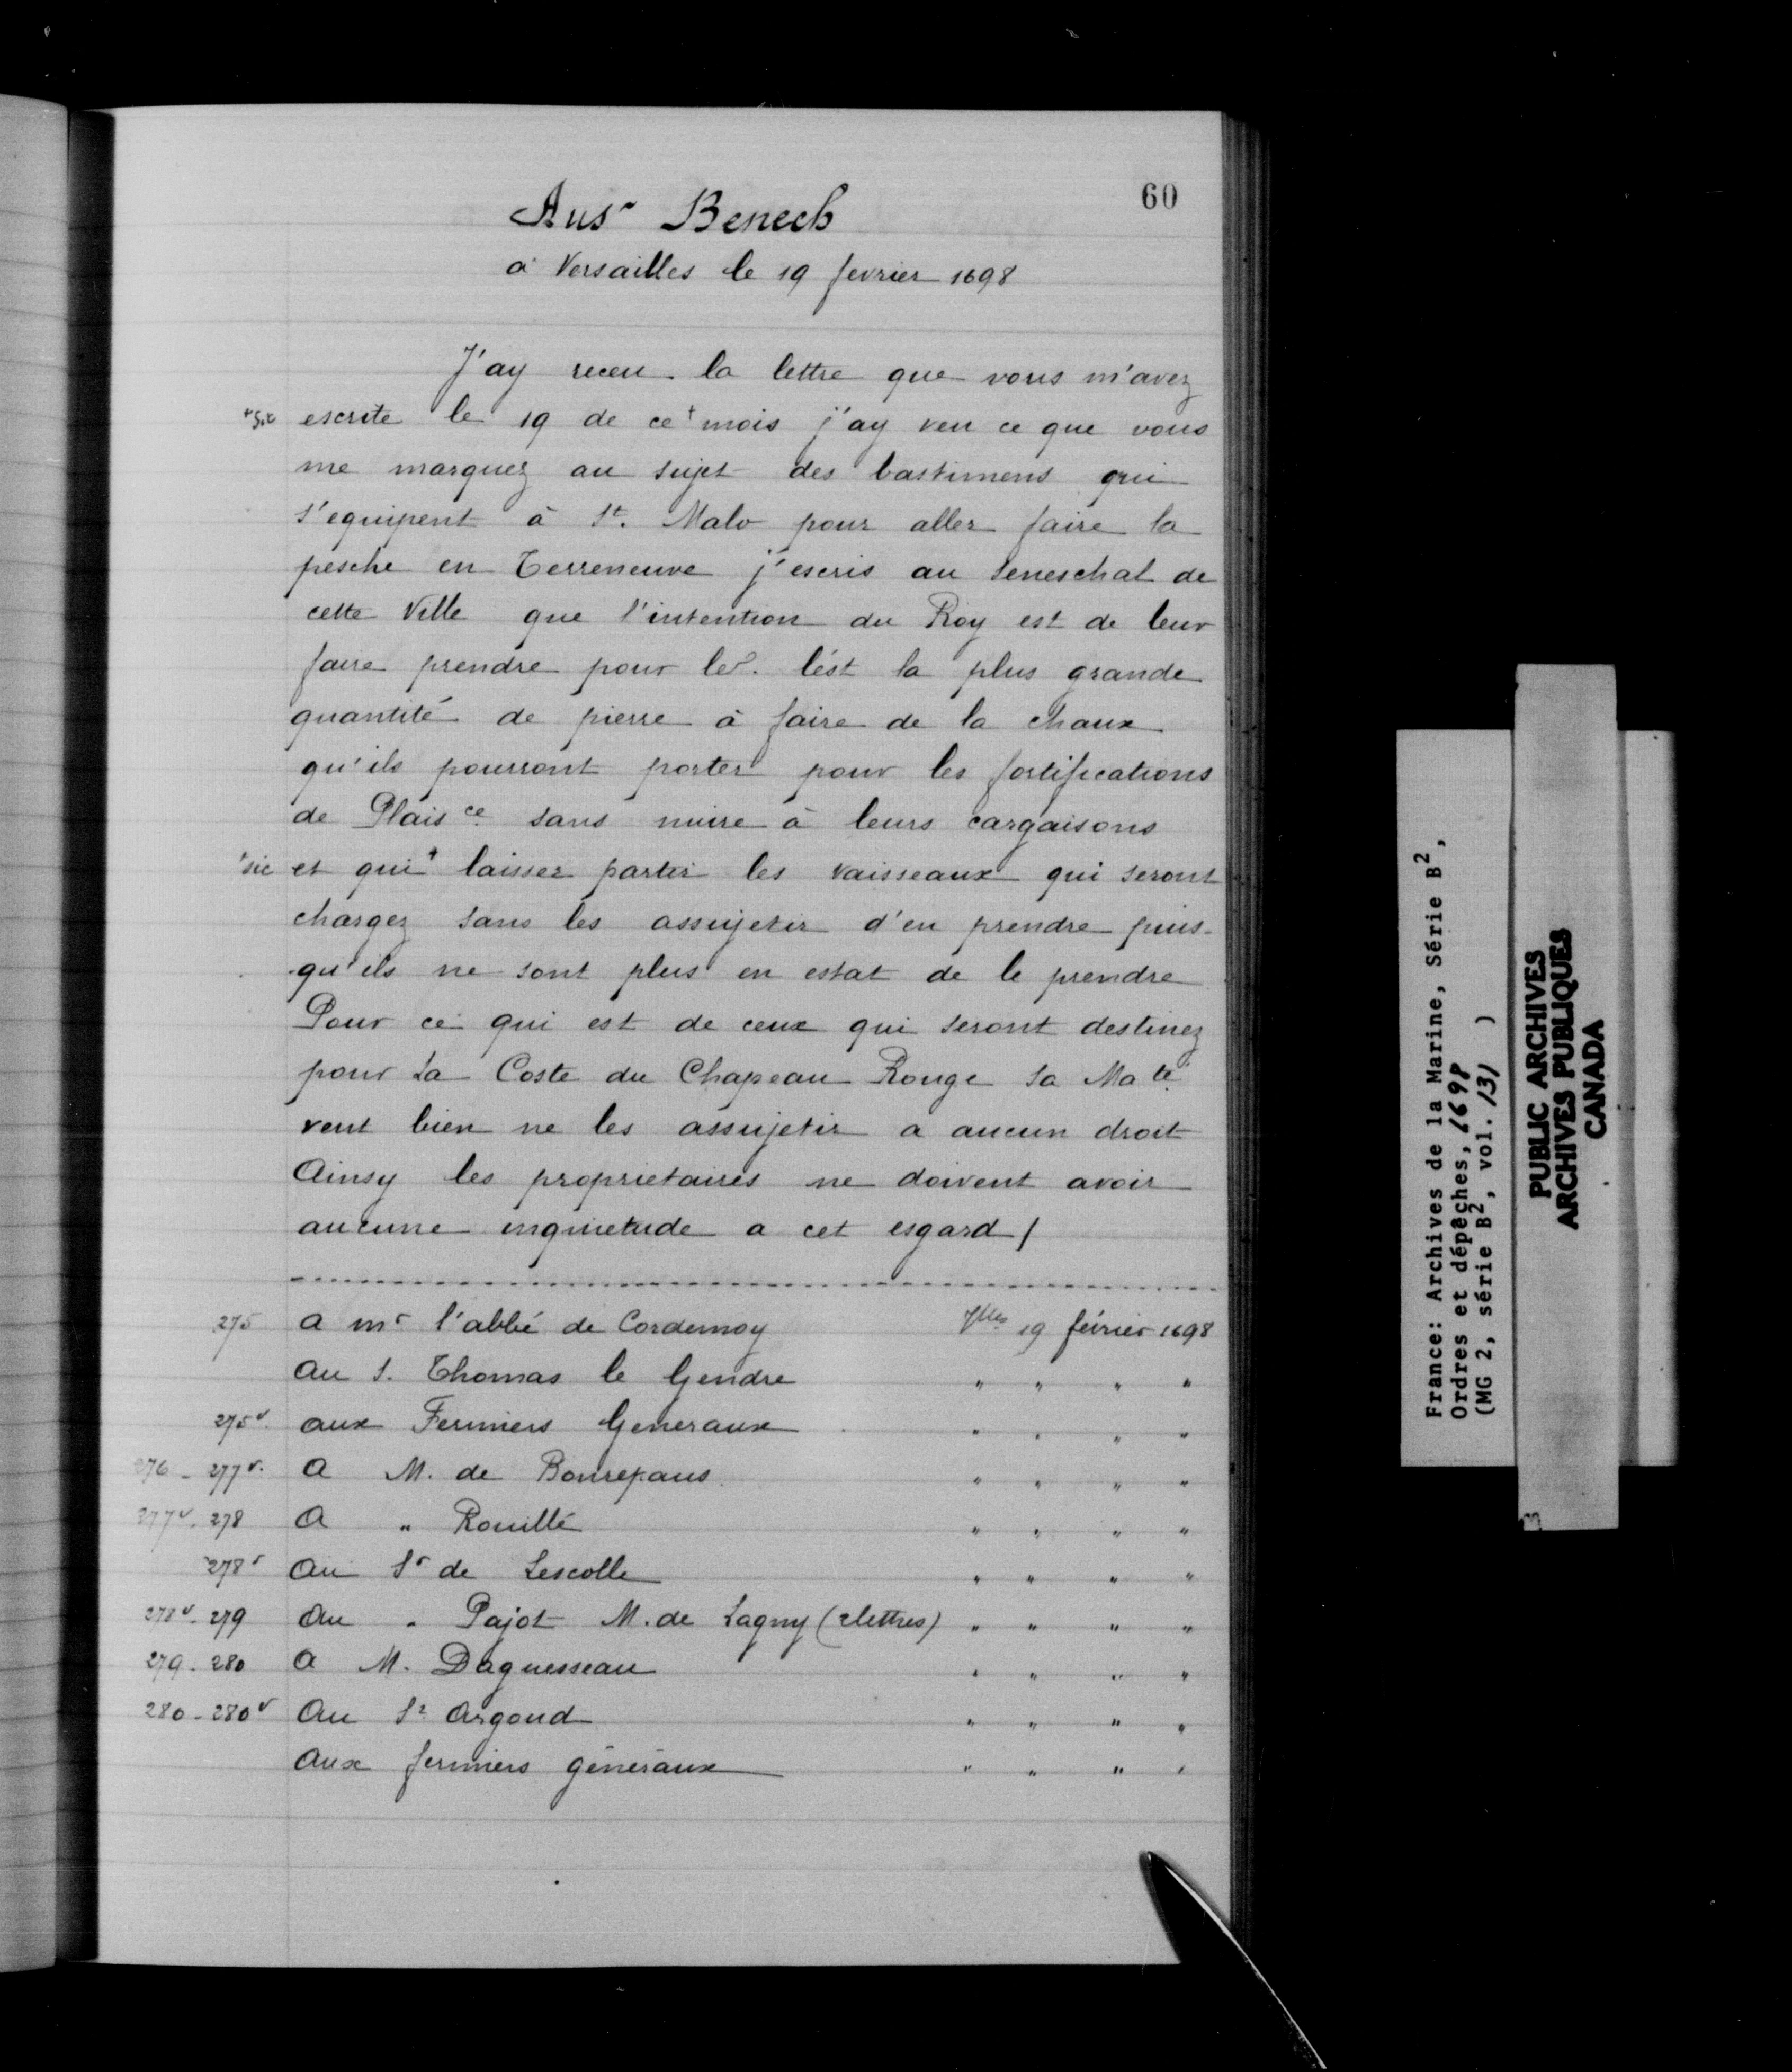 60
Au sr Benech
à Versailles le 19 fevrier 1698
J'ay receu la lettre que vous m'avez
+ sic escrite le 19 de ce + mois j'ay veu ce que vous
me marquez au sujet des bastimens qui
s'equipent à St. Malo pour aller faire la
pesche en Terreneuve j'escris au Seneschal de
cette Ville que l'intention du Roy est de leur
faire prendre pour lest la plus grande
quantité de pierre à faire de la chaux
qu'ils pourront porter pour les fortifications
de Plaisce sans nuire à leurs cargaisons
+ sic et qui + laisser partir les vaisseaux qui seront
chargez sans les assujetir d'en prendre puis-
qu'ils ne sont plus en estat de le prendre
Pour ce qui est de ceux qui seront destinez
pour La Coste du Chapeau Rouge Sa Maté
veut bien ne les assujetir a aucun droit
Ainsy les proprietaires ne doivent avoir
aucune inquietude a cet esgard /
275 a mr l'abbé de Cordemoy Vlles 19 février 1698
au S. Thomas le Gendre " " " "
275v. aux Fermiers Generaux " " " "
276 - 277v. A M. de Bonrepaus " " " "
277v. 278 A " Rouillé " " " "
278r Au Sr de Lescolle " " " "
278v. 279 Au " Pajot M. de Lagny (2 lettres) " " " "
279 - 280 A M. Daguesseau " " " "
280 - 280v Au Sr Argoud " " " "
Aux fermiers généraux " " " "
France: Archives de la Marine, Série B2,
Ordres et dépêches, 1698
(MG 2, série B2, vol. 131 )
PUBLIC ARCHIVES
ARCHIVES PUBLIQUES
CANADA